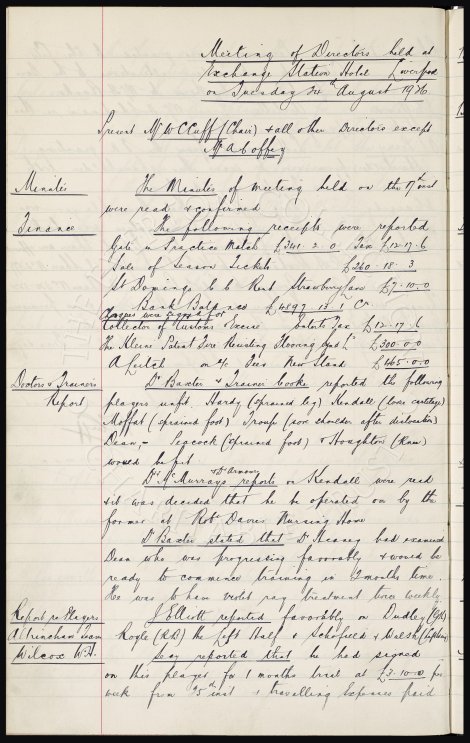 Meeting of Directors held at
Exchange Station Hotel Liverpool
on Tuesday 24th August 1926
Present Mr W C Cuff (Chair) & all other Directors except
Mr A Coffey
Minutes
The Minutes of meeting held on the 17th inst
were read & confirmed
Finance
The following receipts were reported
Gate in Practice Match £341. 2. 0 Tax £12.17.6
Sale of Season Tickets £260. 18. 3
St Domingo Rent Strawberry £7.10.0
Bank Balance £4897. 18. 1 Cr.
Cheques were signed for
Collector of Customs Excise Tax £12.17.6
The Kleine Patent Fire Resisting Flooring Synd L £300.0.0
A Leitch on a/c Fees New Stand £465.0.0
Doctors & Trainers
Report
Dr Baxter & Trainer Cooke reported the following
players unfit. Hardy (sprained leg) Kendall (loose cartilage)
Moffat (sprained foot) Troup (sore shoulder after dislocation)
Dean,- Peacock (sprained foot) & Houghton (knee)
would be fit
Dr McMurrays reports on Kendall were read
& it was decided that he be operated on by the
former at Robt Davies Nursing Home
Dr Baxter stated that Dr had examined
Dean who was progressing favorably & would be
ready to commence training in 2 months time.
He was to have violet ray treatment twice weekly
Report re Players
Altrincham Team
J Elliott reported favorably on Dudley (Gk)
Royle (RB) the Left Half & Schofield & Walsh
Wilcox W.H.
Secy reported that he had signed
on this player for 1 months trial at £3.10.0 per
week from inst & travelling expenses paid